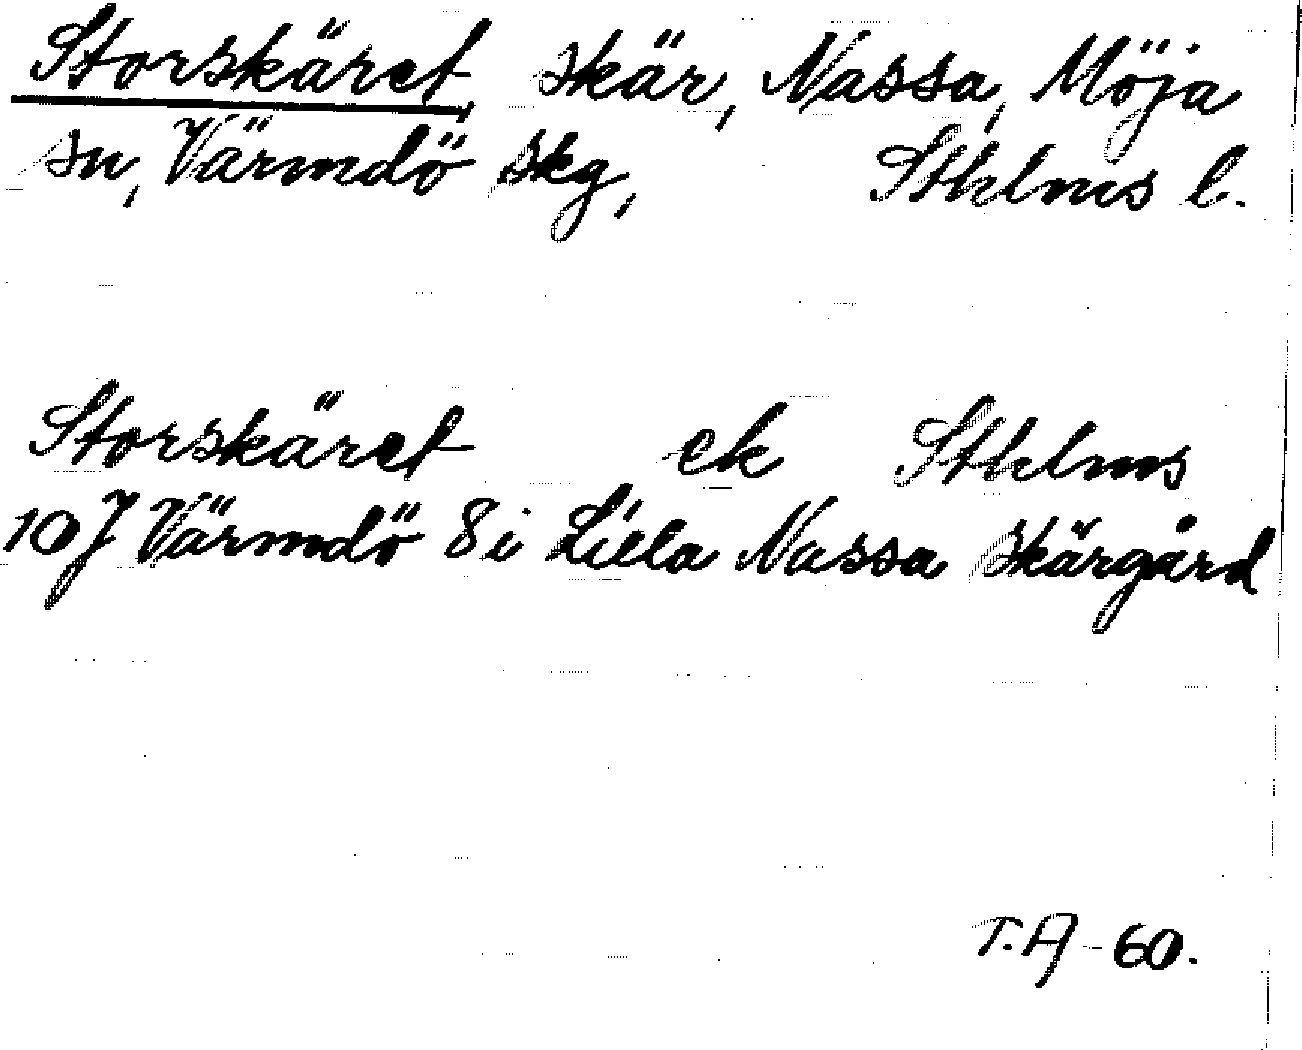 Storskäret, skär, Nassa, Möja
sn, Värmdö skg, Sthlms l.
Storskäret ek Sthlms
10J Värmdö 8i Lilla Nassa skärgård
T.A-60.